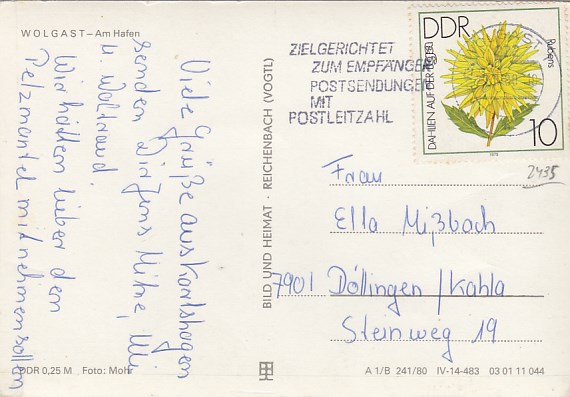 WOLGAST – Am Hafen
Viele Grüße aus Karlshagen
senden Wir Jens Heine, Uli
u. Waltraud
Wir hätten lieber den
Pelzmantel mitnehmen sollen
DDR 0,25 M Foto: Mohr
BILD UND HEIMAT · REICHENBACH (VOGTL)
ZIELGERICHTET
ZUM EMPFÄNGER
POSTSENDUNGEN
MIT
POSTLEITZAHL
WOLGAST 1
DDR
DAHLIEN AUF DER
Rubens
10
1979
2435
Frau
Ella Mißbach
7901 Döllingen/Kahla
Steinweg 19
A 1/B 241/80 IV-14-483 03 01 11 044